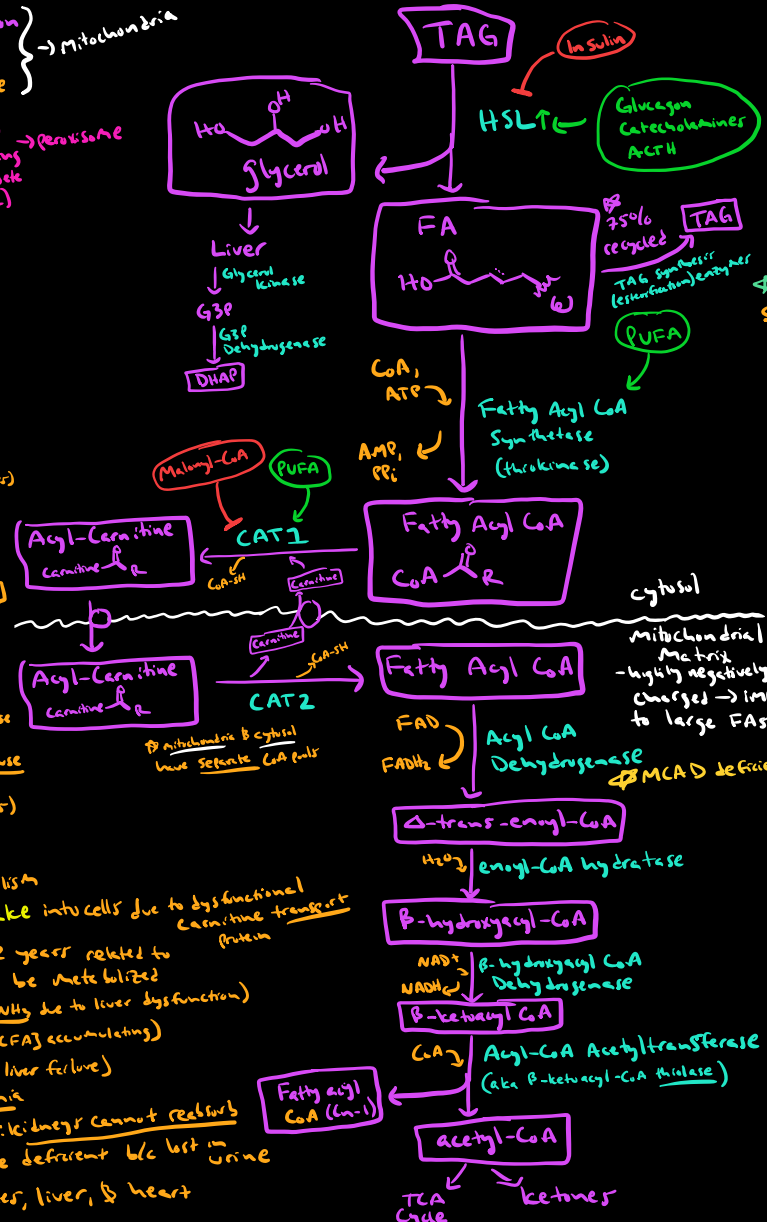 on
→ Mitochondria
e
→ peroxisome
ng
ete
TAG
Insulin
HSL↑
Glucagon
Catecholamines
ACTH
OH
HO
OH
glycerol
Liver
Glycerol
kinase
G3P
G3P
Dehydrogenase
DHAP
FA
O
HO
ω
75%
recycled
TAG
TAG synthesis
(esterification) enzymes
PUFA
CoA,
ATP
AMP,
PPi
Fatty Acyl CoA
Synthetase
(thiokinase)
Malonyl-CoA
PUFA
CAT1
CoA-SH
Carnitine
Acyl-Carnitine
O
carnitine
R
Fatty Acyl CoA
O
CoA
R
cytosol
Carnitine
Acyl-Carnitine
O
carnitine
R
CoA-SH
CAT2
Fatty Acyl CoA
Mitochondrial
Matrix
- highly negatively
charged → im
to large FAs
mitochondria & cytosol
have separate CoA pools
FAD
FADH2
Acyl CoA
Dehydrogenase
MCAD defici
Δ-trans-enoyl-CoA
H2O
enoyl-CoA hydratase
β-hydroxyacyl-CoA
NAD+
NADH
β-hydroxyacyl CoA
Dehydrogenase
β-ketoacyl CoA
CoA
Acyl-CoA Acetyltransferase
(aka β-ketoacyl-CoA thiolase)
Fatty acyl
CoA (Cn-1)
acetyl-CoA
TCA
Cycle
ketones
lism
ake into cells due to dysfunctional
carnitine transport
protein
2 years related to
be metabolized
NH3 due to liver dysfunction)
CFA] accumulating)
liver failure)
nia
: kidneys cannot reabsorb
e deficient b/c lost in
urine
es, liver, & heart